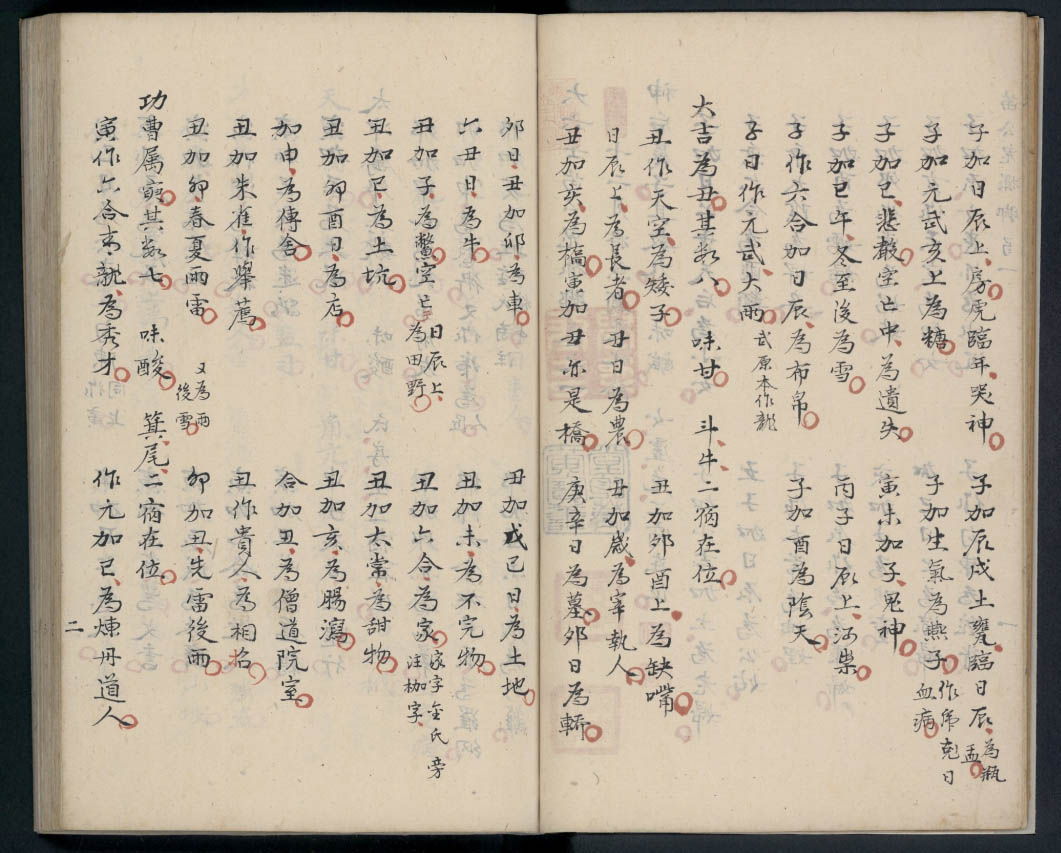 子加日辰上、房虎臨年哭神　子加辰戌土甕、臨日辰、為瓶盂
子加元武亥上為糖　子加生氣為燕子、作虎尅日血病
子加巳、悲散、空亡中、為遺失　寅未加子、鬼神
子加巳午冬至後為雪　丙子日辰上、江柴
子作六合加日辰、為布帛　子加酉為陰天
子日作元武大雨　武原本作龍
大吉為丑其數八、味甘　斗、牛二宿在位
丑作天空、為矮子　丑加卯酉上、為缺嘴
日辰上、為長者、丑日為農　丑加歲、為宰執人
丑加亥為橋寅加丑亦是橋　庚辛日為墓、卯日為轎
卯日、丑加卯、為車　丑加戊己日、為土地
六丑日、為牛　丑加未、為不完物
丑加子、為鱉、空亡日辰上為田野　丑加六合、為冢　冢字金氏旁注枷字
丑加巳、為土坑　丑加太常、為甜物
丑加卯酉日、為店　丑加亥、為腸瀉
加申、為傳舍　合加丑、為僧道院室
丑加朱雀、作舉薦　丑作貴人、為相名
丑加卯春夏雨雷　又為雨後雪　卯加丑、先雷後雨
功曹属寅其數七　味酸　箕尾二宿在位
寅作六合青龍、為秀才　作元加巳、為煉丹道人
二